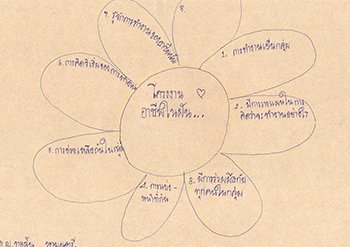 โครงงาน
อาชีพในฝัน...
1. การทำงานเป็นกลุ่ม
2. มีการวางแผนในการ
คิดว่าจะทำงานอย่างไร
3. มีการร่วมมือกับ
ทุกคนในกลุ่ม
4. การแบ่ง
หน้าที่กัน
5. การช่วยเหลือกันในกลุ่ม
6. การคิดริเริ่มของ
7. รู้จักการทำงานของ
8.